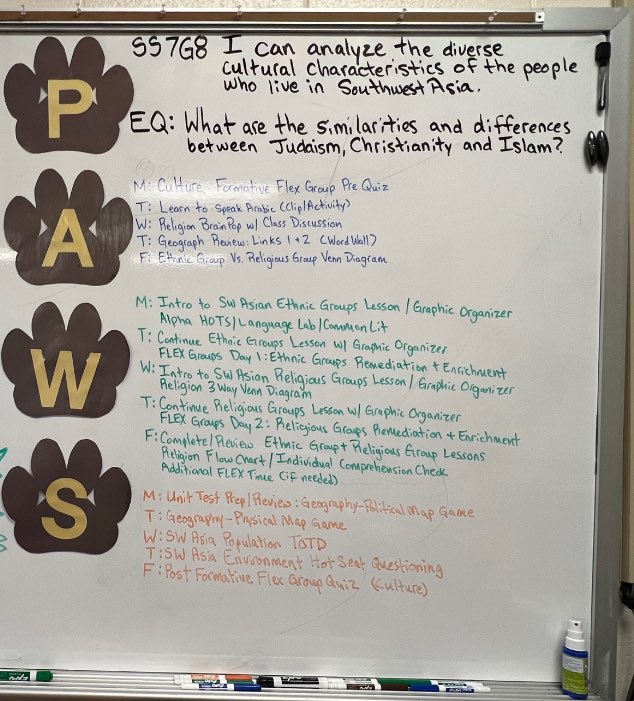 P
SS7G8 I can analyze the diverse
cultural characteristics of the people
who live in Southwest Asia.
EQ: What are the similarities and differences
between Judaism, Christianity and Islam?
A
M: Culture Formative Flex Group Pre Quiz
T: Learn to Speak Arabic (Clip/Activity)
W: Religion BrainPop w/ Class Discussion
T: Geograph Review: Links 1+2 (Word Wall)
F: Ethnic Group Vs. Religious Group Venn Diagram
W
M: Intro to SW Asian Ethnic Groups Lesson / Graphic Organizer
Alpha HOTS/Language Lab/CommonLit
T: Continue Ethnic Groups Lesson w/ Graphic Organizer
FLEX Groups Day 1: Ethnic Groups Remediation + Enrichment
W: Intro to SW Asian Religious Groups Lesson / Graphic Organizer
Religion 3 Way Venn Diagram
T: Continue Religious Groups Lesson w/ Graphic Organizer
FLEX Groups Day 2: Religious Groups Remediation + Enrichment
F: Complete/Review Ethnic Group + Religious Group Lessons
Religion Flow Chart / Individual Comprehension Check
Additional FLEX Time (if needed)
S
M: Unit Test Prep/Review: Geography-Political Map Game
T: Geography-Physical Map Game
W: SW Asia Population TOTD
T: SW Asia Environment Hot Seat Questioning
F: Post Formative Flex Group Quiz (Culture)